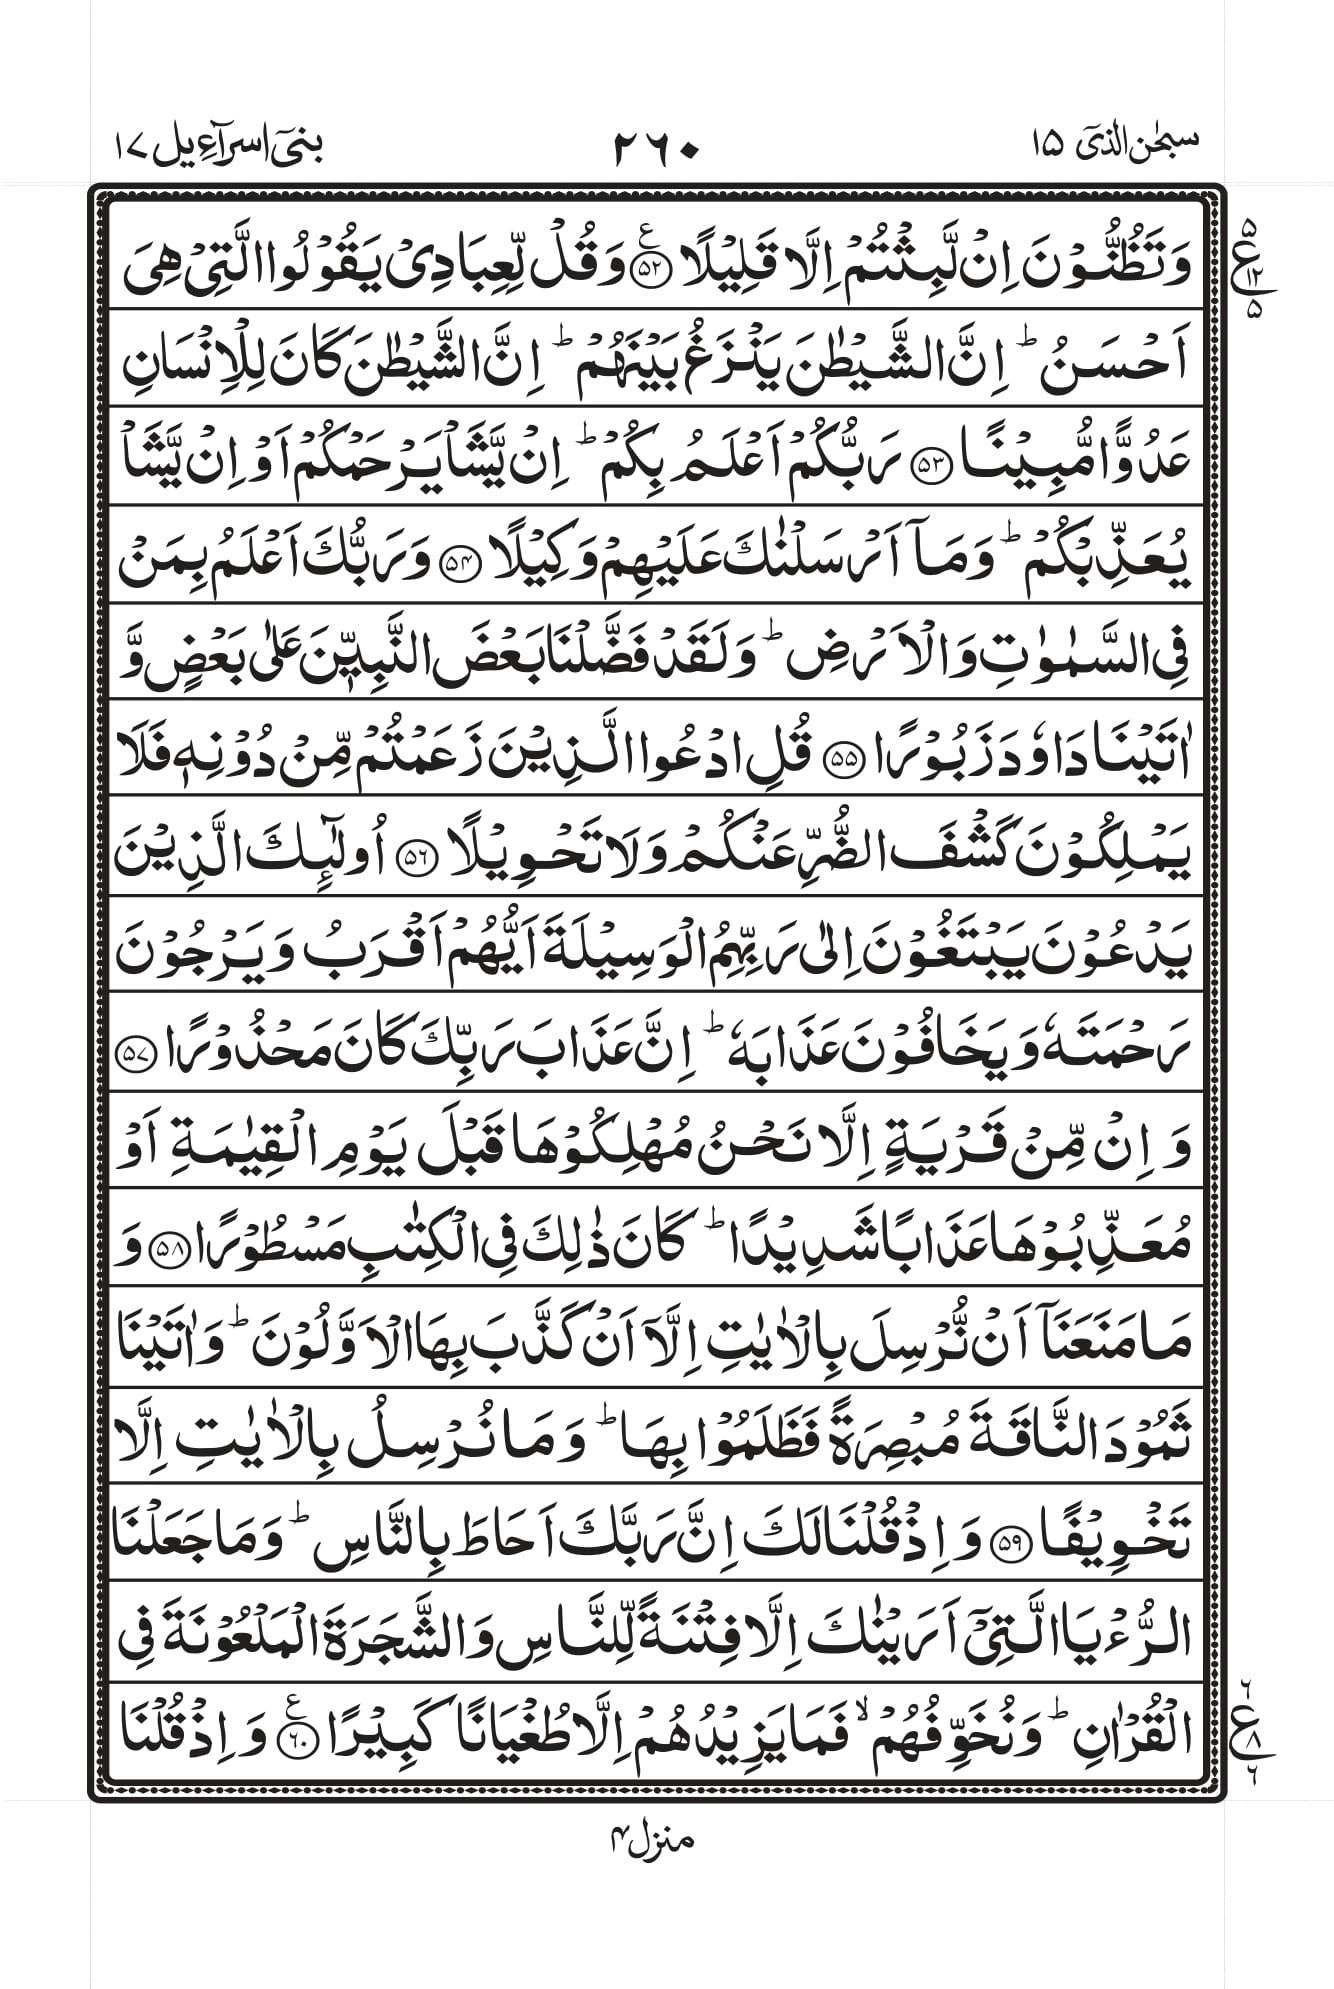 سبحٰن الذیٓ ۱۵ ۲۶۰ بنیٓ اسرآءیل ۱۷
وَتَظُنُّوْنَ اِنْ لَّبِثْتُمْ اِلَّا قَلِیْلًا ﴿۵۲﴾ ع وَقُلْ لِّعِبَادِیْ یَقُوْلُوا الَّتِیْ هِیَ
اَحْسَنُ ؕ اِنَّ الشَّیْطٰنَ یَنْزَغُ بَیْنَهُمْ ؕ اِنَّ الشَّیْطٰنَ كَانَ لِلْاِنْسَانِ
عَدُوًّا مُّبِیْنًا ﴿۵۳﴾ رَبُّكُمْ اَعْلَمُ بِكُمْ ؕ اِنْ یَّشَاْ یَرْحَمْكُمْ اَوْ اِنْ یَّشَاْ
یُعَذِّبْكُمْ ؕ وَمَاۤ اَرْسَلْنٰكَ عَلَیْهِمْ وَكِیْلًا ﴿۵۴﴾ وَرَبُّكَ اَعْلَمُ بِمَنْ
فِی السَّمٰوٰتِ وَالْاَرْضِ ؕ وَلَقَدْ فَضَّلْنَا بَعْضَ النَّبِیّٖنَ عَلٰی بَعْضٍ وَّ
اٰتَیْنَا دَاوٗدَ زَبُوْرًا ﴿۵۵﴾ قُلِ ادْعُوا الَّذِیْنَ زَعَمْتُمْ مِّنْ دُوْنِهٖ فَلَا
یَمْلِكُوْنَ كَشْفَ الضُّرِّ عَنْكُمْ وَلَا تَحْوِیْلًا ﴿۵۶﴾ اُولٰٓىِٕكَ الَّذِیْنَ
یَدْعُوْنَ یَبْتَغُوْنَ اِلٰی رَبِّهِمُ الْوَسِیْلَةَ اَیُّهُمْ اَقْرَبُ وَیَرْجُوْنَ
رَحْمَتَهٗ وَیَخَافُوْنَ عَذَابَهٗ ؕ اِنَّ عَذَابَ رَبِّكَ كَانَ مَحْذُوْرًا ﴿۵۷﴾
وَاِنْ مِّنْ قَرْیَةٍ اِلَّا نَحْنُ مُهْلِكُوْهَا قَبْلَ یَوْمِ الْقِیٰمَةِ اَوْ
مُعَذِّبُوْهَا عَذَابًا شَدِیْدًا ؕ كَانَ ذٰلِكَ فِی الْكِتٰبِ مَسْطُوْرًا ﴿۵۸﴾ وَ
مَا مَنَعَنَاۤ اَنْ نُّرْسِلَ بِالْاٰیٰتِ اِلَّاۤ اَنْ كَذَّبَ بِهَا الْاَوَّلُوْنَ ؕ وَاٰتَیْنَا
ثَمُوْدَ النَّاقَةَ مُبْصِرَةً فَظَلَمُوْا بِهَا ؕ وَمَا نُرْسِلُ بِالْاٰیٰتِ اِلَّا
تَخْوِیْفًا ﴿۵۹﴾ وَاِذْ قُلْنَا لَكَ اِنَّ رَبَّكَ اَحَاطَ بِالنَّاسِ ؕ وَمَا جَعَلْنَا
الرُّءْیَا الَّتِیْۤ اَرَیْنٰكَ اِلَّا فِتْنَةً لِّلنَّاسِ وَالشَّجَرَةَ الْمَلْعُوْنَةَ فِی
الْقُرْاٰنِ ؕ وَنُخَوِّفُهُمْ ۙ فَمَا یَزِیْدُهُمْ اِلَّا طُغْیَانًا كَبِیْرًا ﴿۶۰﴾ ع وَاِذْ قُلْنَا
۵
ع ۱۲
۵
۶
ع ۸
۶
منزل ۴